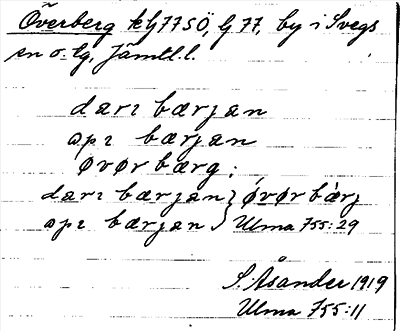 Överberg kG77SÖ, G 77, by i Svegs
sn o. tg, Jämtl. l.
darɩ bærjan
opɩ bærjan
øvør bærg;
darɩ bærjan } óvør bærj
opɩ bærjan } Ulma 755:29
S. Åsander 1919
Ulma 755:11